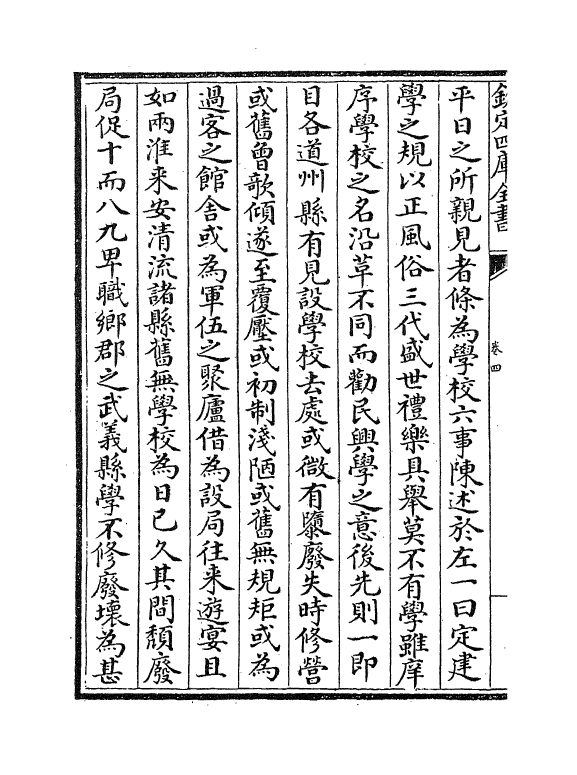 欽定四庫全書
卷四
平日之所親見者條為學校六事陳述於左一曰定建
學之規以正風俗三代盛世禮樂具舉莫不有學雖庠
序學校之名沿革不同而勸民興學之意後先則一即
目各道州縣有見設學校去處或微有隳廢失時修營
或舊曾歌傾遂至覆壓或初制淺陋或舊無規矩或為
過客之館舍或為軍伍之聚廬借為設局往来遊宴且
如兩淮来安清流諸縣舊無學校為日已久其間頽廢
局促十而八九卑職鄉郡之武義縣學不修廢壊為甚